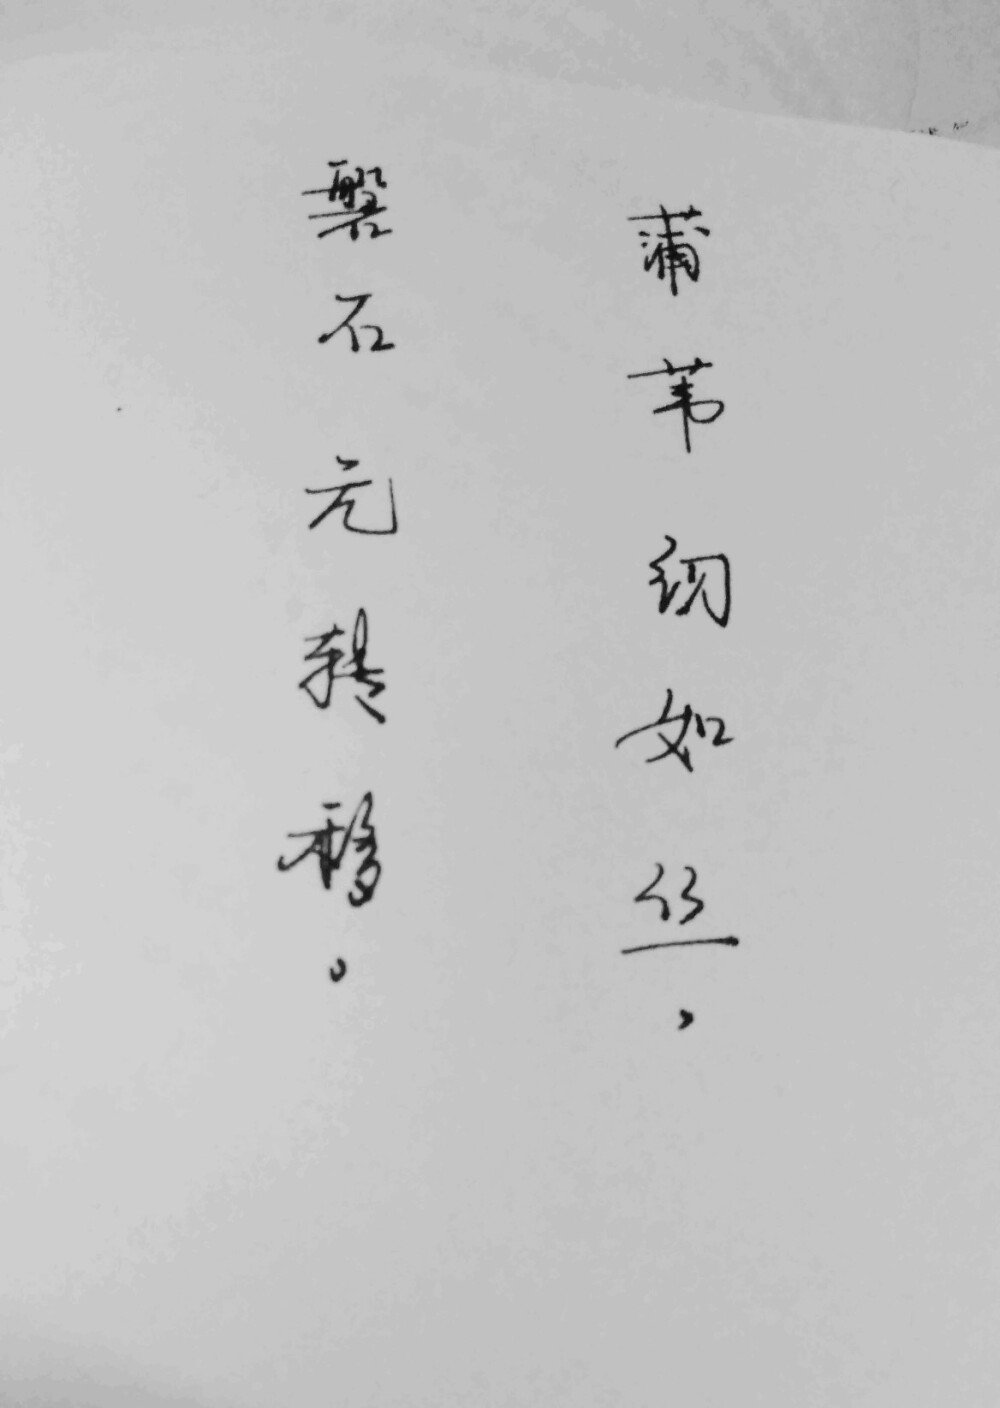 蒲苇纫如丝，
磐石无转移。